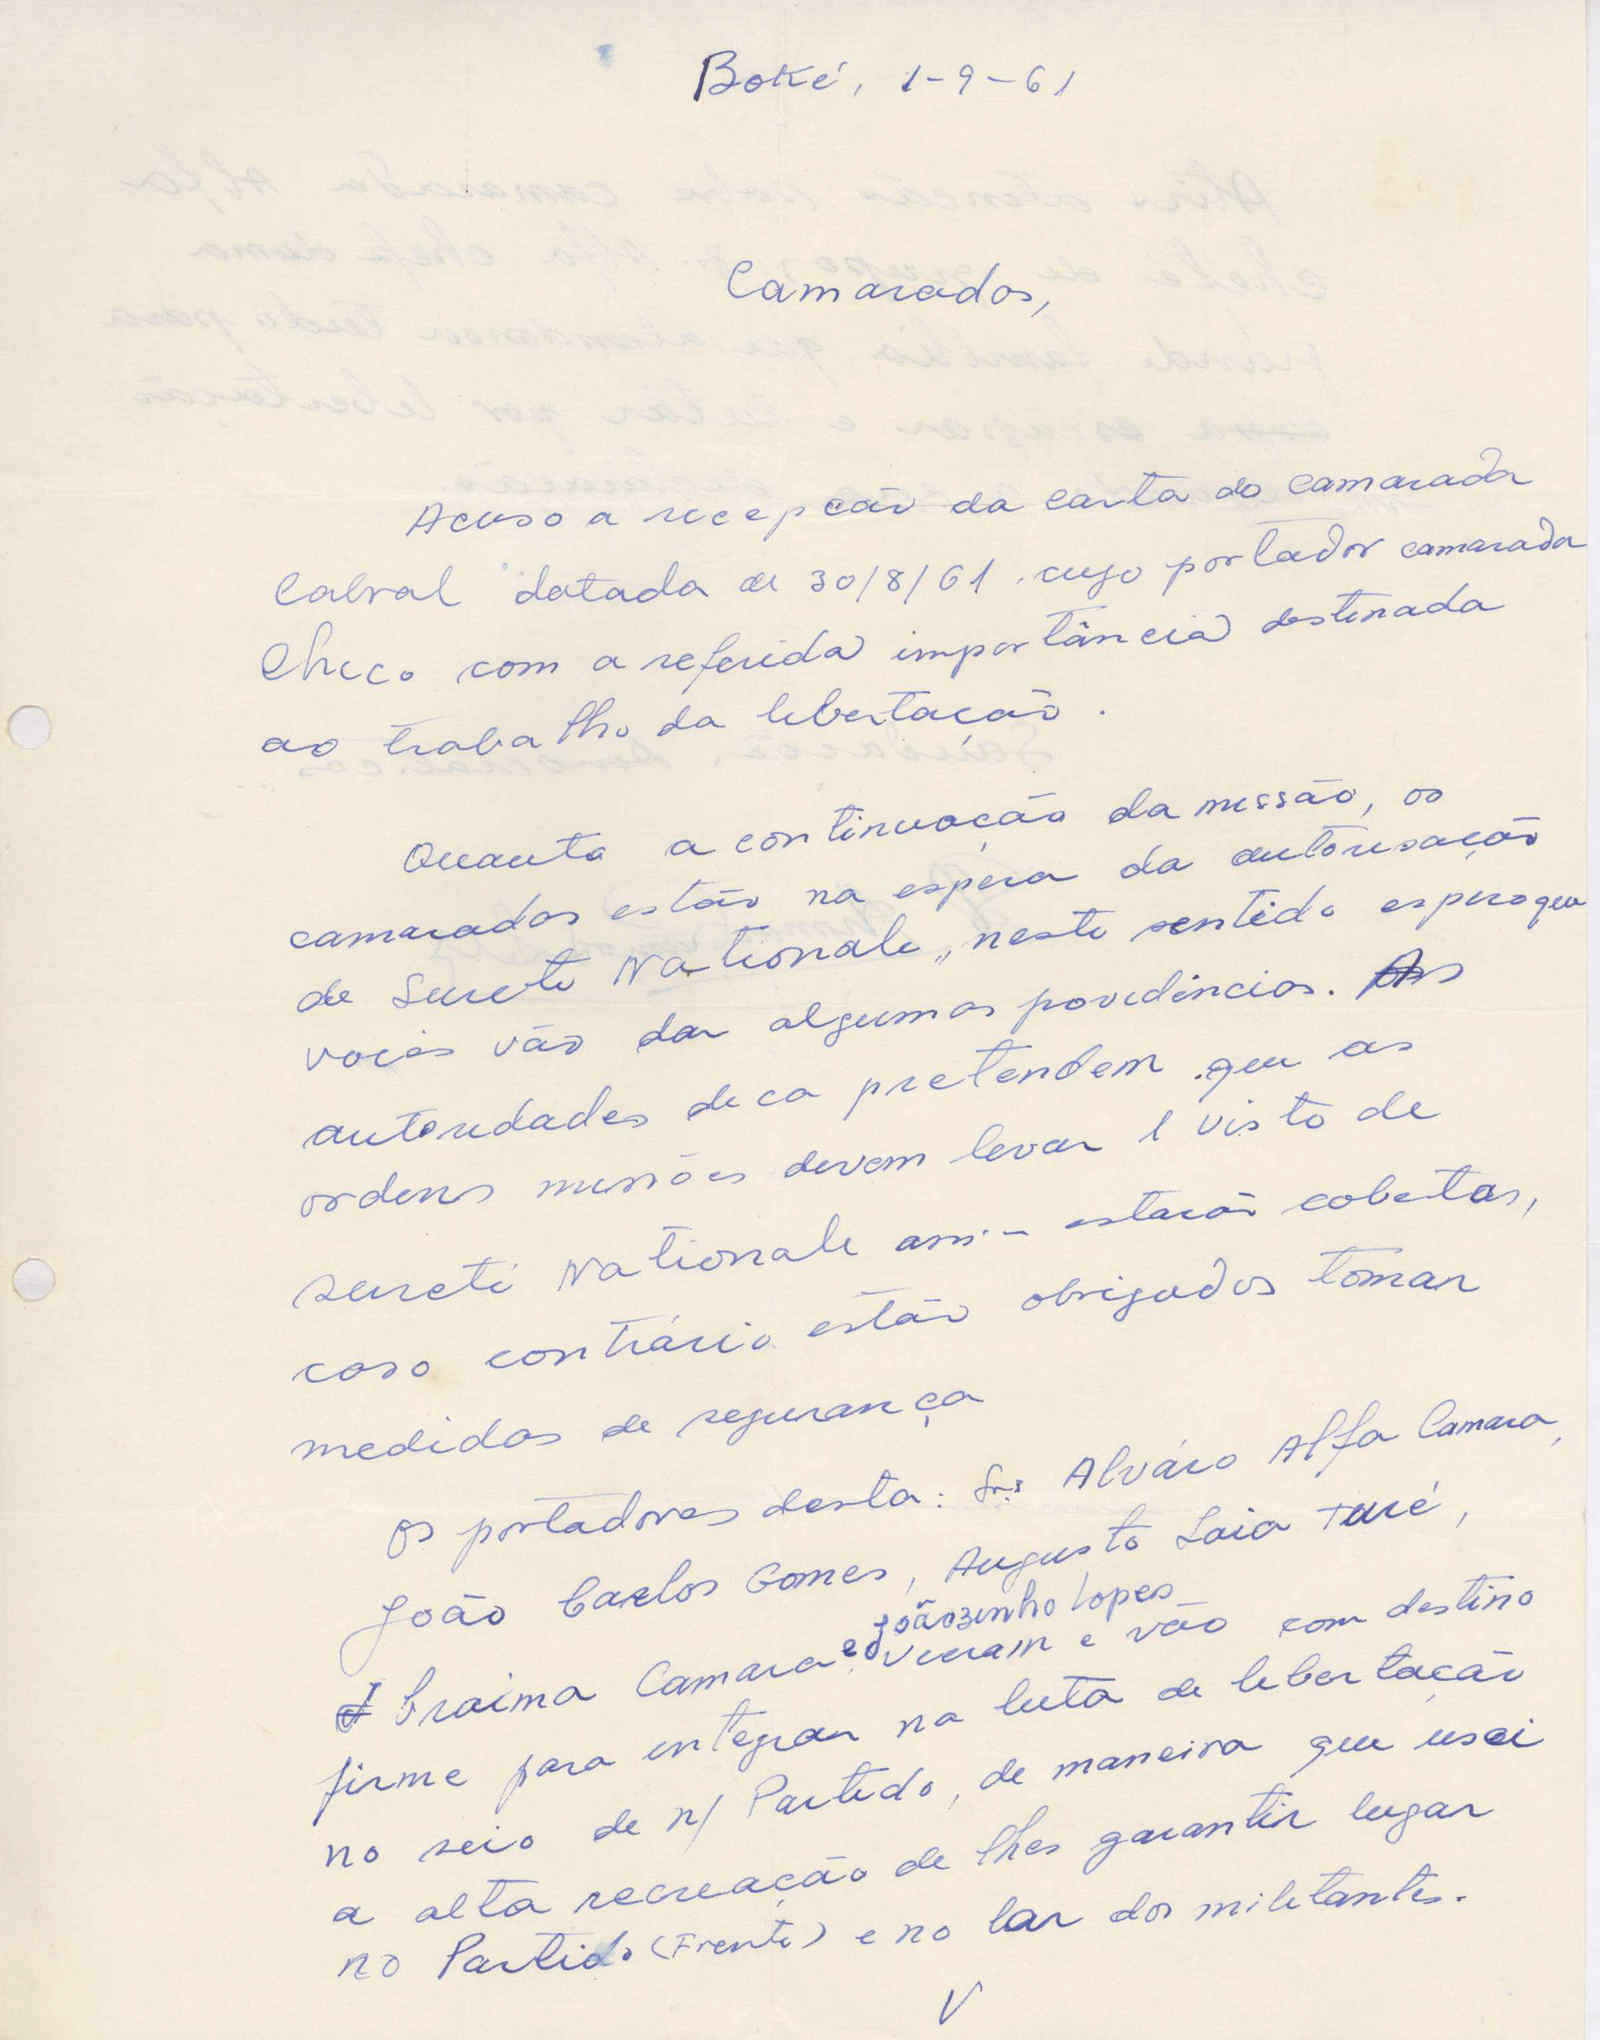 Boké, 1-9-61
Camaradas,
Acuso a recepção da carta do camarada
Cabral datada de 30/8/61. cujo portador camarada
Chico com a referida importância destinada
ao trabalho da libertação.
Quanto a continuação da missão, os
camaradas estão na espera da autorisação
de Sureté Nationale,, neste sentido espero que
voces vão dar algumas providências. As
autoridades de ca pretendem que as
ordens missões devem levar 1 visto de
sureté Nationale assi- estarão cobertas,
caso contrário estão obrigados tomar
medidas de segurança
Os portadores desta: Srs Alváro Alfa Camara,
João Carlos Gomes, Augusto Laia Turé,
Ibraima Camara e Joãozinho Lopes vieram e vão com destino
firme para integrar na luta de libertação
no seio de n/ Partido, de maneira que usei
a alta recreação de lhes garantir lugar
no Partido (Frente) e no lar dos militantes.
V